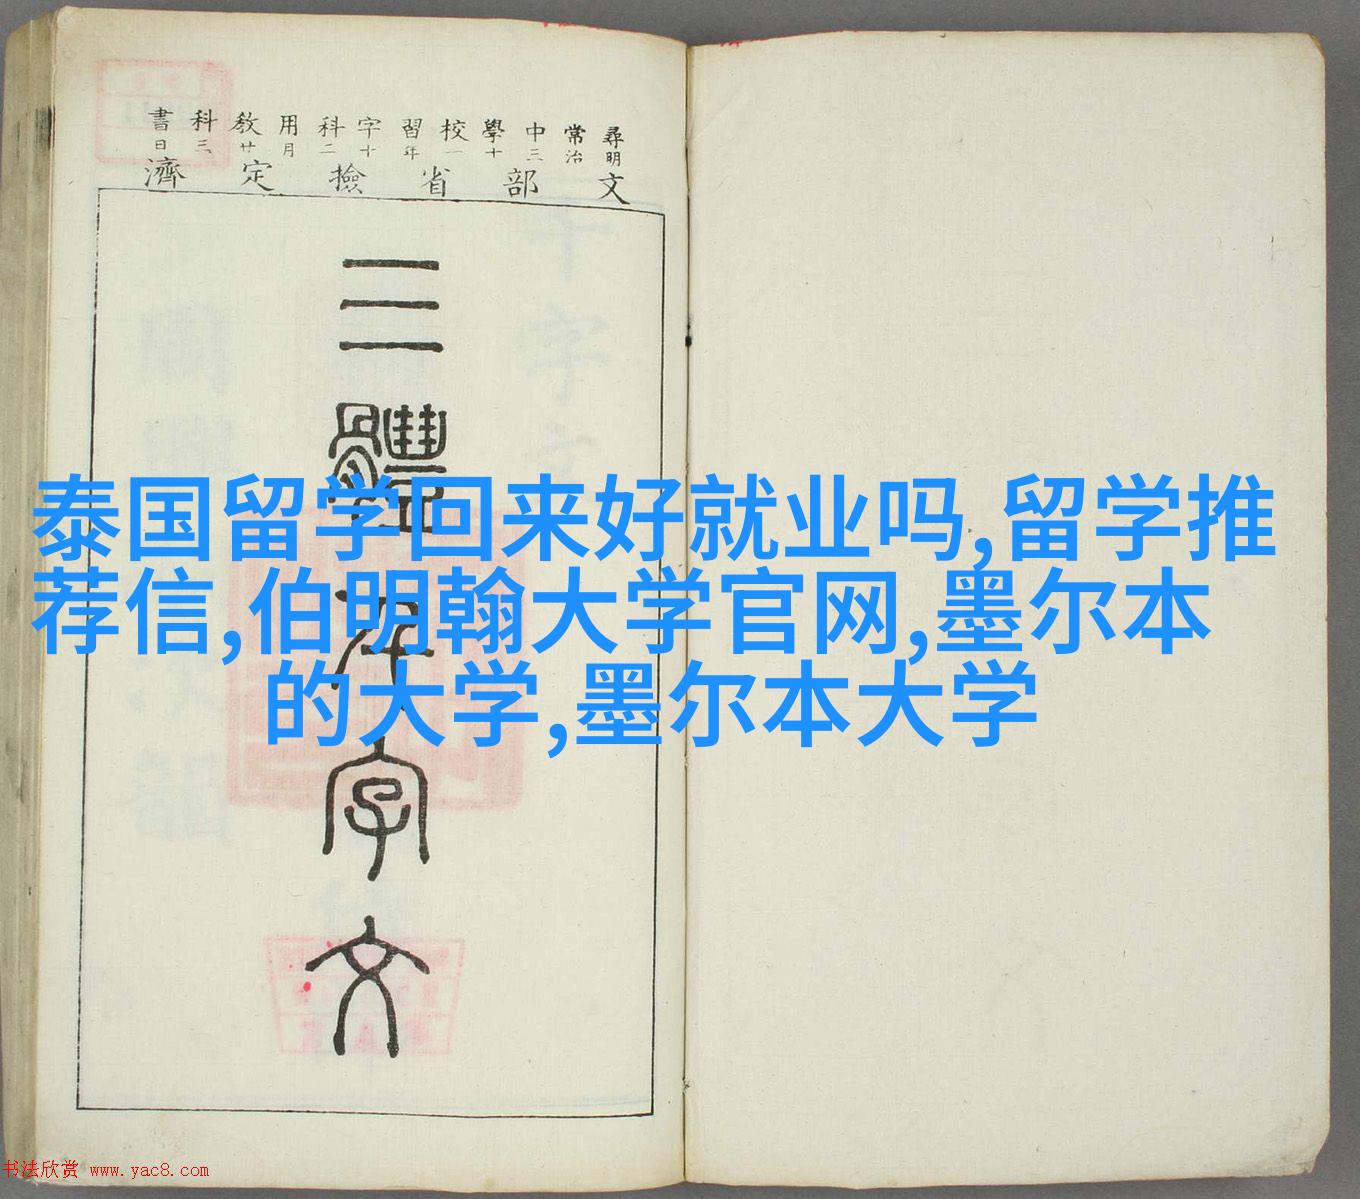 尋常中學校習字科用教科書
明治三十一年十二月廿三日
文部省撿定濟
三體千字文
泰国留学回来好就业吗,留学推
荐信,伯明翰大学官网,墨尔本
的大学,墨尔本大学
书法欣赏 www.yac8.com